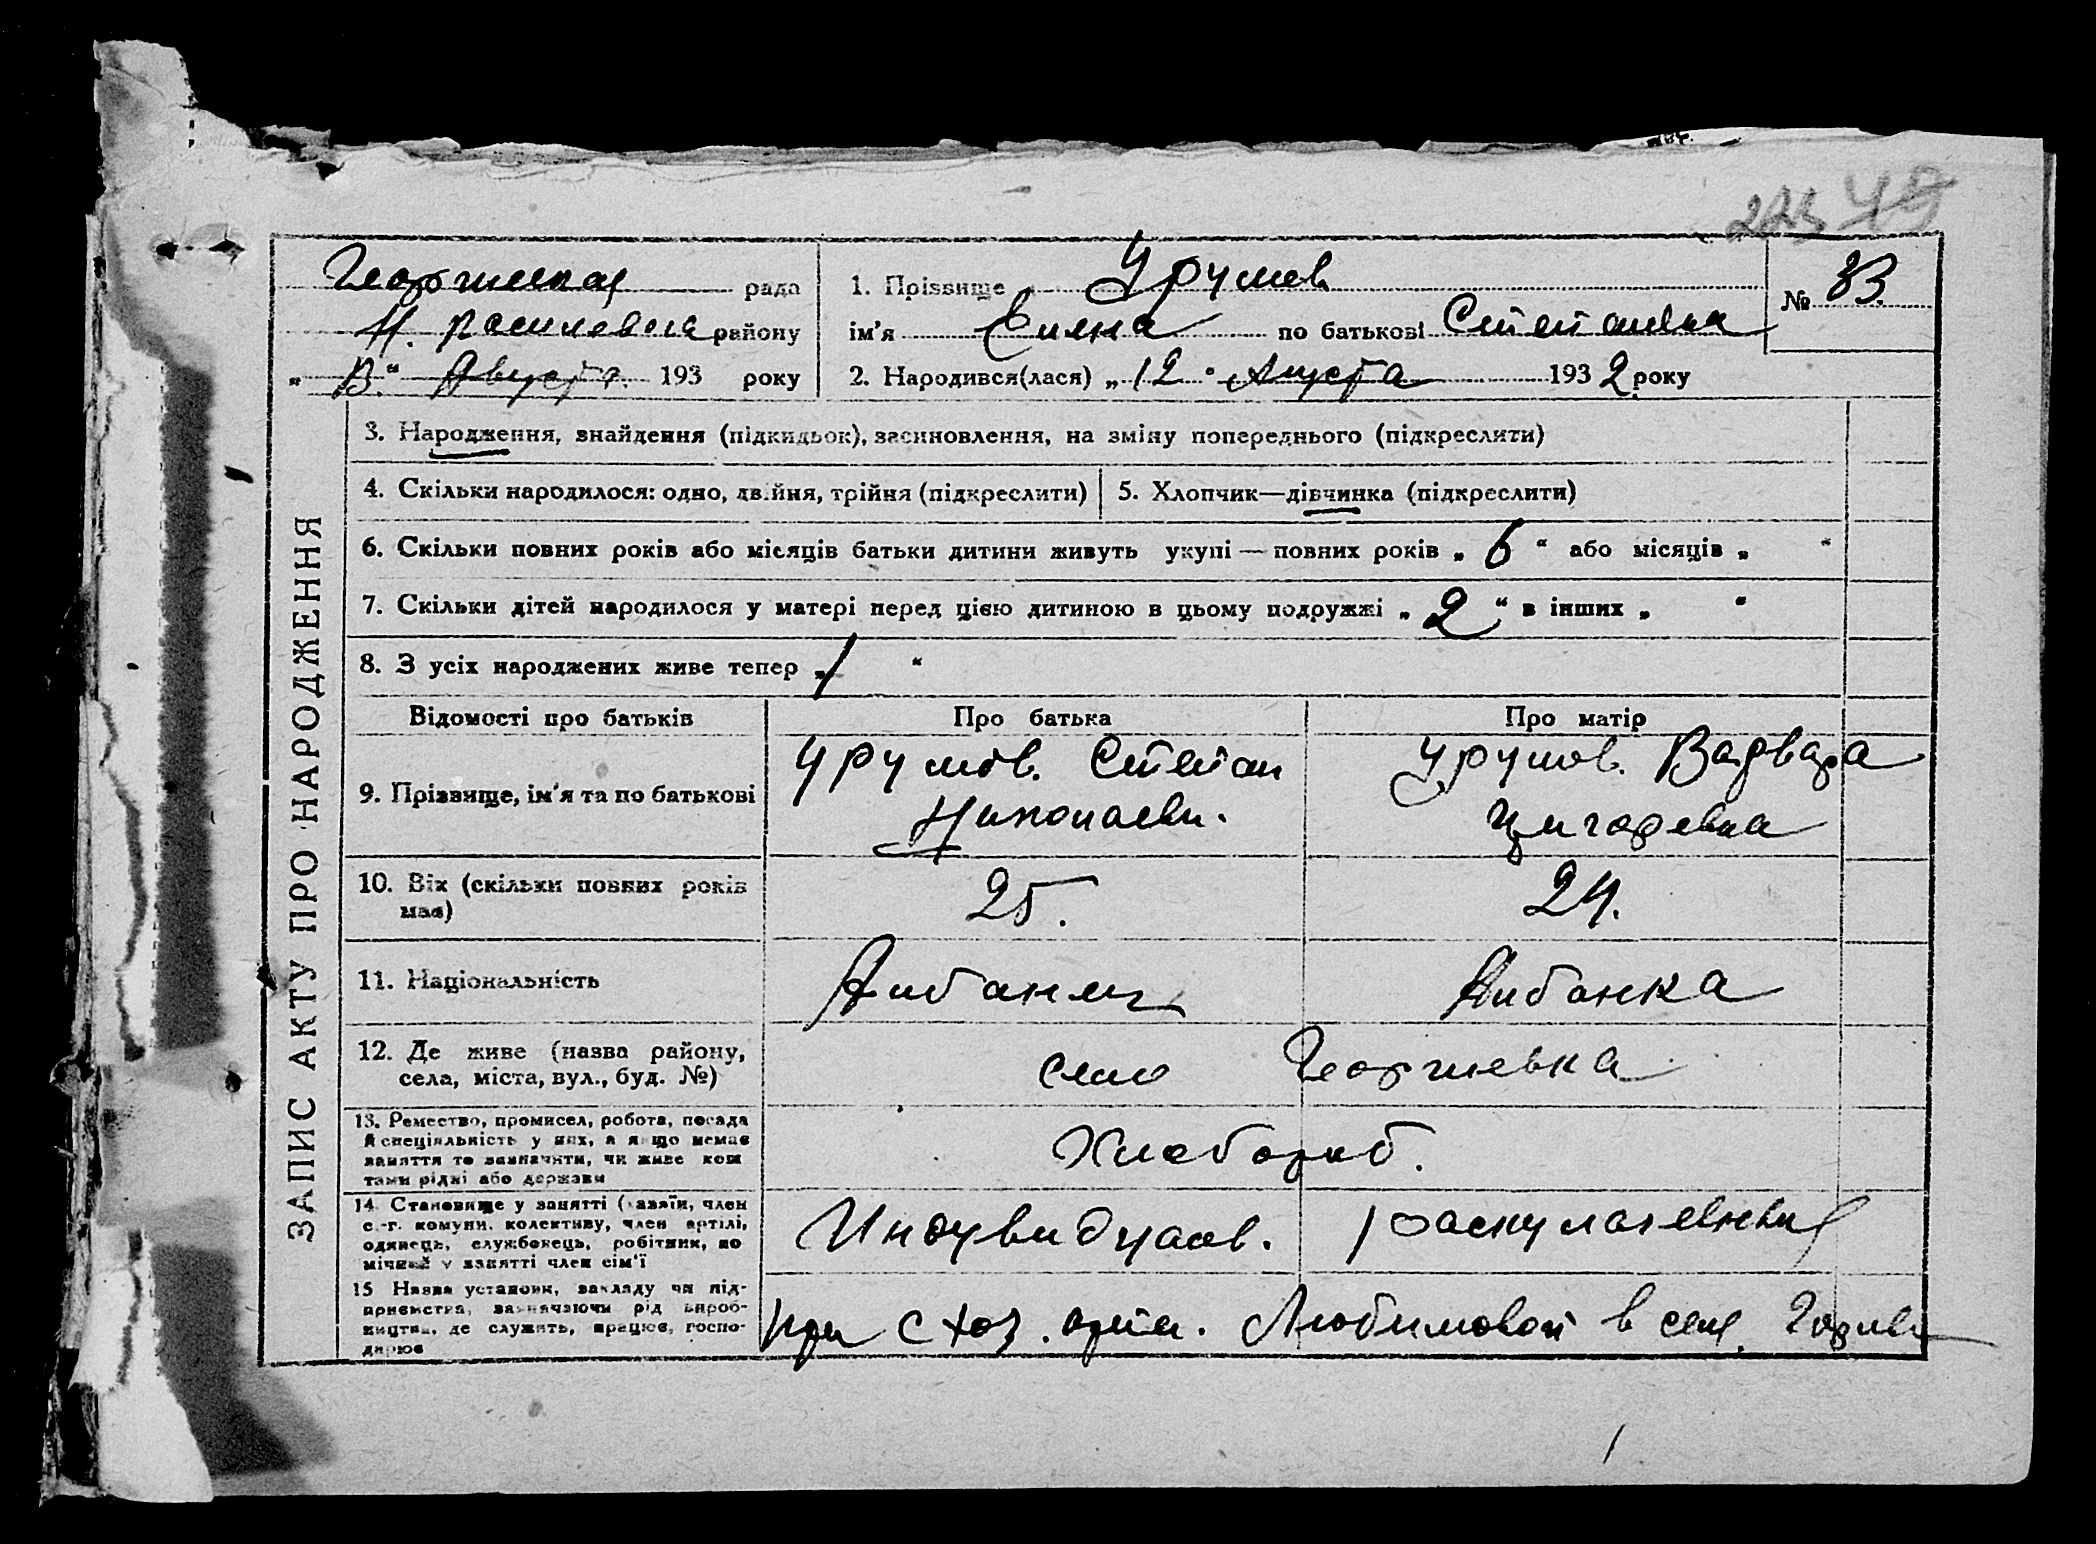 ЗАПИС АКТУ ПРО НАРОДЖЕННЯ
Георгиевская рада
района
Августа 193 року
1. Прізвище Урумов
ім'я по батькові Степановна
№ 33.
2. Народився(лася) „12“ Августа 1932 року
3. Народження, знайдення (підкидьок), засиновлення, на зміну попереднього (підкреслити)
4. Скільки народилося: одно, двійня, трійня (підкреслити)
5. Хлопчик—дівчинка (підкреслити)
6. Скільки повних років або місяців батьки дитини живуть укупі — повних років „6“ або місяців „ “
7. Скільки дітей народилося у матері перед цією дитиною в цьому подружжі „2“ в інших „ “
8. З усіх народжених живе тепер „1 “
Відомості про батьків Про батька Про матір
9. Прізвище, ім'я та по батькові
Урумов. Степан
Николаеви.
Урумов. Варвара
10. Вік (скільки повних років має)
25. 24.
11. Національність
Албанец Албанка
12. Де живе (назва району, села, міста, вул., буд. №)
село Георгиевка
13. Ремество, промисел, робота, посада й спеціяльність у них, а якщо немає заняття то зазначити, чи живе коштами рідні або держави
Хлебороб.
14. Становище у занятті (хазяїн, член с.-г. комуни, колективу, член артілі, одинець, службовець, робітник, помічний у занятті член сім'ї
Индувидуалв.
15 Назва установи, закладу чи підприємства, зазначаючи рід виробництва, де служить, працює, господарює
при с хоз. арти. Любимовой в селе